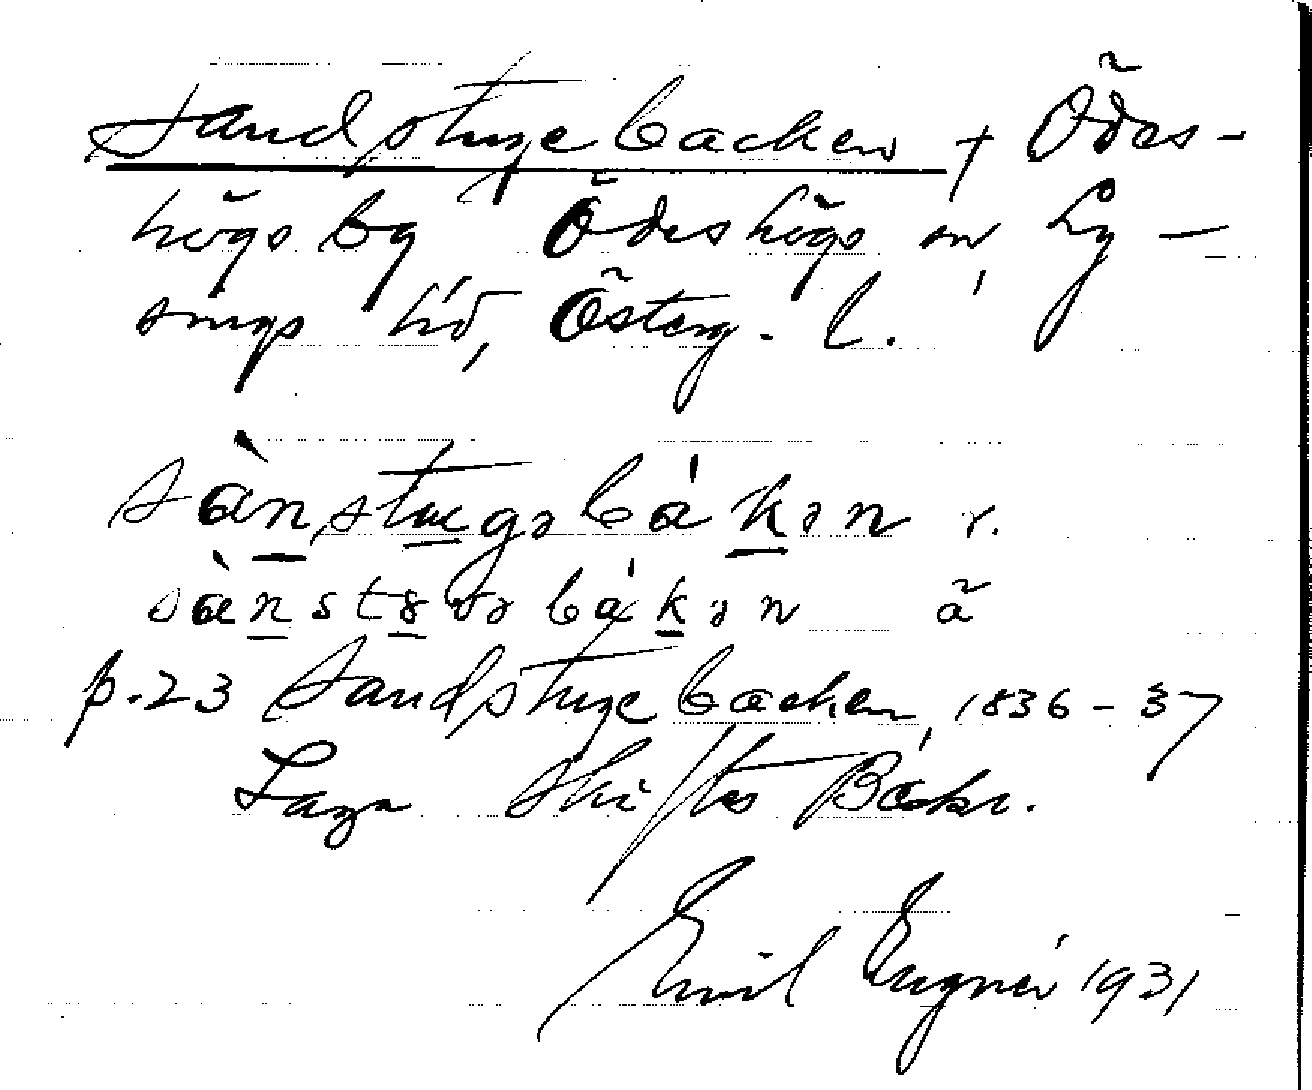 Sandstugebacken + Ödes-
högs by Ödeshögs sn, Ly-
sings hd, Österg. l.
sànstugəbákən r.
sànstɞvəbákən ã
p. 23 Sandstugebacken, 1836-37
Laga Skiftes Beskr.
Emil Engnér 1931